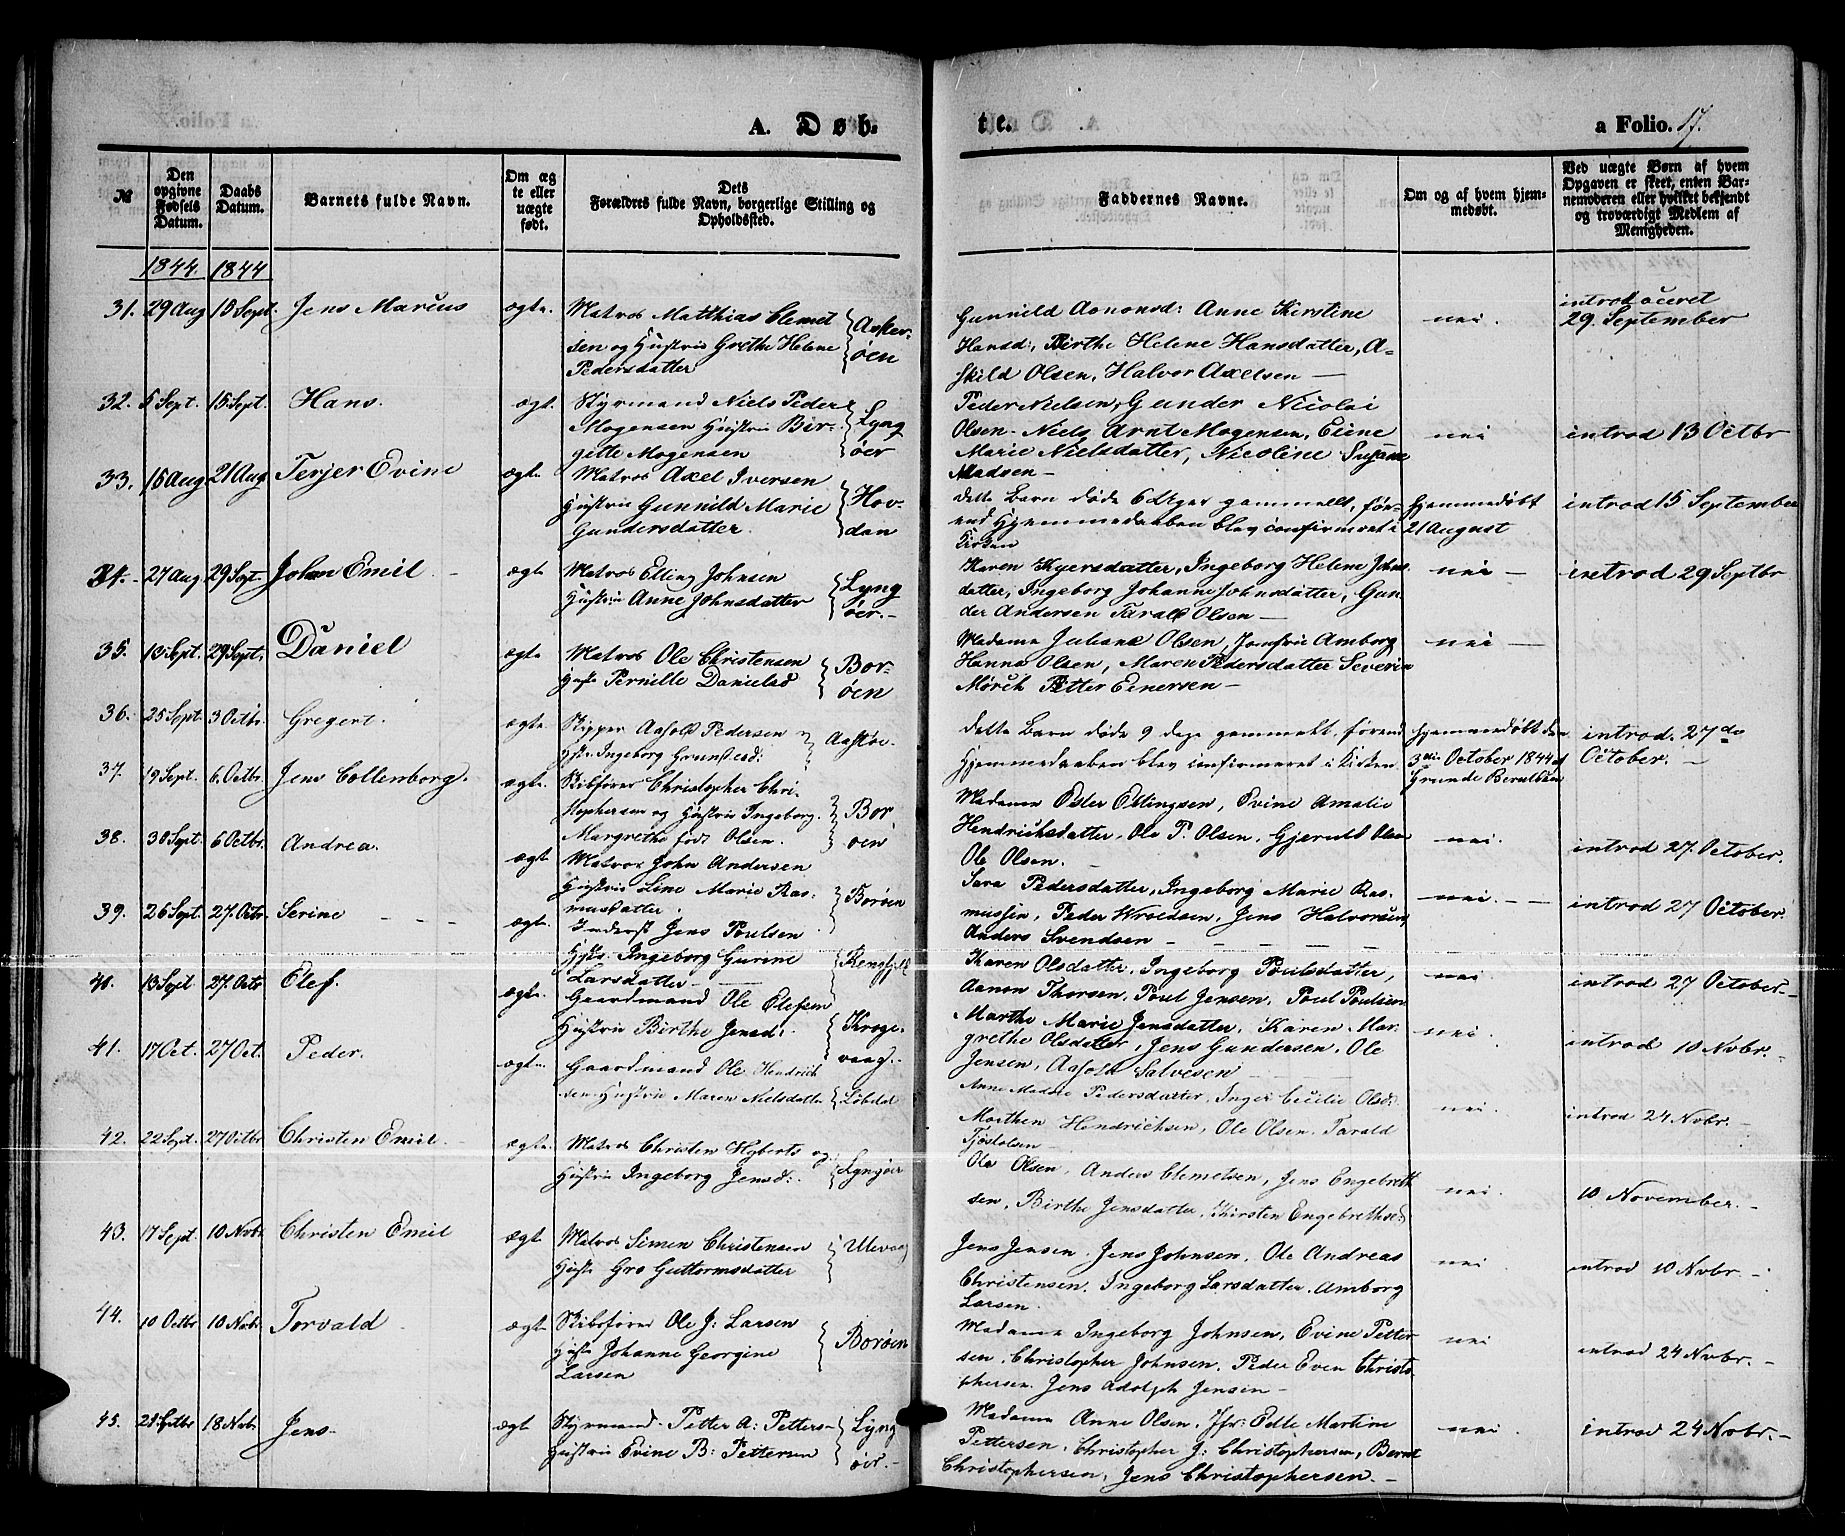 A. Døb-
te.
a Folio. 17.
№
Den opgivne Fødsels Datum.
Daabs Datum.
Barnets fulde Navn.
Om ægte eller uægte født.
Dets Forældres fulde Navn, borgerlige Stilling og Opholdssted.
Faddernes Navne.
Om og af hvem hjemmedøbt.
Ved uægte Børn af hvem Opgaven er skeet, enten Barnemoderen eller hvilket bekjendt og troværdigt Medlem af Menigheden.
1844 1844
31. 29 Aug 15 Sept. Jens Marius ægte. Matros Matthias Clemet
sen og Hustrue Grethe Helene
Pedersdatter
Asker-
øen
Gunild Aanonsd: Anne Kirstine
Hansd:, Birthe Helene Hansdatter, A-
skild Olsen, Halvor Axelsen —
nei.
introduceret
29. September
32. 5 Sept. 15. Sept. Hans. ægt. Styrmand Niels Peder
Mogensen Hustrue Bir-
gitte Mogensen
Lyng
øer
Peder Nielsen, Gunder Nicolai
Olsen. Niels Arnt Mogensen, Eline
Marie Nielsdatter, Nicoline Susane
Madsen —
nei
introd 13 Octbr
33. 16 Aug 21 Aug Terjer Evine ægte. Matros Axel Iversen
Hustrue Gunnild Marie
Gundersdatter.
Hov-
dan
dette Barn døde 6 Uger gammelt, før-
end Hjemmedaaben blev confirmeret i
Kirken
hjemmedøbt
21 August
introd 15 September
34. 27 Aug. 29 Sept. Johan Emil ægte Matros Elling Johnsen
Hustrue Anne Johnsdatter
Lyng
øer.
Karen Kyersdatter, Ingeborg Helene Johns
datter, Ingeborg Johanne Johnsdatter, Gun
der Andersen Tarald Olsen —
nei —
introd 29 Septbr
35. 13 Sept. 29 Sept. Daniel ægte Matros Ole Christensen
Hust. Pernille Danielsd
Bor-
øen
Madame Juliane Olsen, Jomfrue Amborg
Hanna Olsen, Maren Pedersdatter Severin
Mørch Petter Einersen —
nei —
36. 25 Sept. 3 Octbr. Gregert. ægte. Skipper Aasold Pedersen
Hst. Ingeborg
Aastøe.
dette Barn døde 9 dage gammelt, førend
Hjemmedaaben blev confirmeret i Kirken
hjemmedøbt den
3die October 1844 af
introd. 27de
October. —
37. 19 Sept. 6. Octbr. Jens Collenborg. ægte. Skibsfører Christopher Chri-
stophersen og Hustrue Ingeborg
Margrethe født Olsen.
Bor
øen
Madame Ester Ellingsen, Evine Amalie
Hendrichsdatter, Ole P. Olsen, Gjeruld Olsen
Ole Olsen.
nei.
introd 27. October.
38. 30 Sept. 6 Octbr. Andrea. ægt Matros John Andersen
Hustrue Line Marie Ras-
musdatter.
Borøen
Sara Pedersdatter, Ingeborg Marie Ras
mussen, Peder Wroldsen, Jens Halvorsen,
Anders Svendsen —
nei. —
introd 27 October.
39. 26 Sept. 27. Octr. Serine ægte. Inderst Jens Poulsen
Hust. Ingeborg Gurine
Larsdatter —
Karen Olsdatter, Ingeborg Poulsdatter,
Aanon Thorsen, Poul Jensen, Poul Poulsen
nei
introd 27 October. —
40. 13 Sept 27. Octr Elef. ægte. Gaardmand Ole Elefsen
Hustrue Birthe Jensd:
Kroge-
vaag.
Marthe Marie Jensdatter, Karen Mar-
grethe Olsdatter, Jens Gundersen, Ole
Jensen, Aasold Salvesen —
nei.
introd 10 Novbr. —
41. 17 Oct. 27 Oct. Peder. ægte. Gaardmand Ole Hendrich
sen Hustrue Maren Nielsdatter
Løbdal
Anne Pedersdatter, Inger Cecilie Olsd:
Morthen Hendrichsen, Ole Olsen, Tarald
Tjøstolsen —
nei.
introd 24 Novbr. —
42. 22 Sept. 27 Octbr Christen Emil ægte. Matros Christen Hybertz og
Hustrue Ingeborg Jensd:
Lyngøer
Ole Olsen, Anders Clemetsen, Jens Engebreth
sen, Birthe Jensdatter, Kirsten Engebrethsd
nei.
10 November. —
43. 17 Sept. 10 Novbr. Christen Emil ægt. Matros Simen Christensen
Hust. Gro Guttormsdatter
Ulevaag
Jens Jensen, Jens Johnsen, Ole Andreas
Christensen, Ingeborg Larsdatter, Amborg
Larsen.
nei
introd 10 Novbr. —
44. 10 Octbr 10 Novbr. Torvald ægte. Skibsfører Ole J: Larsen
Hust. Johanne Georgine
Larsen
Borøen
Madame Ingeborg Johnsen, Evine Petter
sen, Christopher Johnsen, Peder Even Christo-
phersen, Jens Adolph Jensen —
nei
introd 24 Novbr. —
45. 21 Octbr 18 Novb Jens ægt Styrmand Petter A: Petters-
Hustrue Evine B: Pettersen
Lyng
øer. —
Madame Anne Olsen, Jfr: Edle Martine
Pettersen, Christopher J: Christophersen, Bernt
Christophersen, Jens Christophersen. —
nei
introd 24 Novbr. —